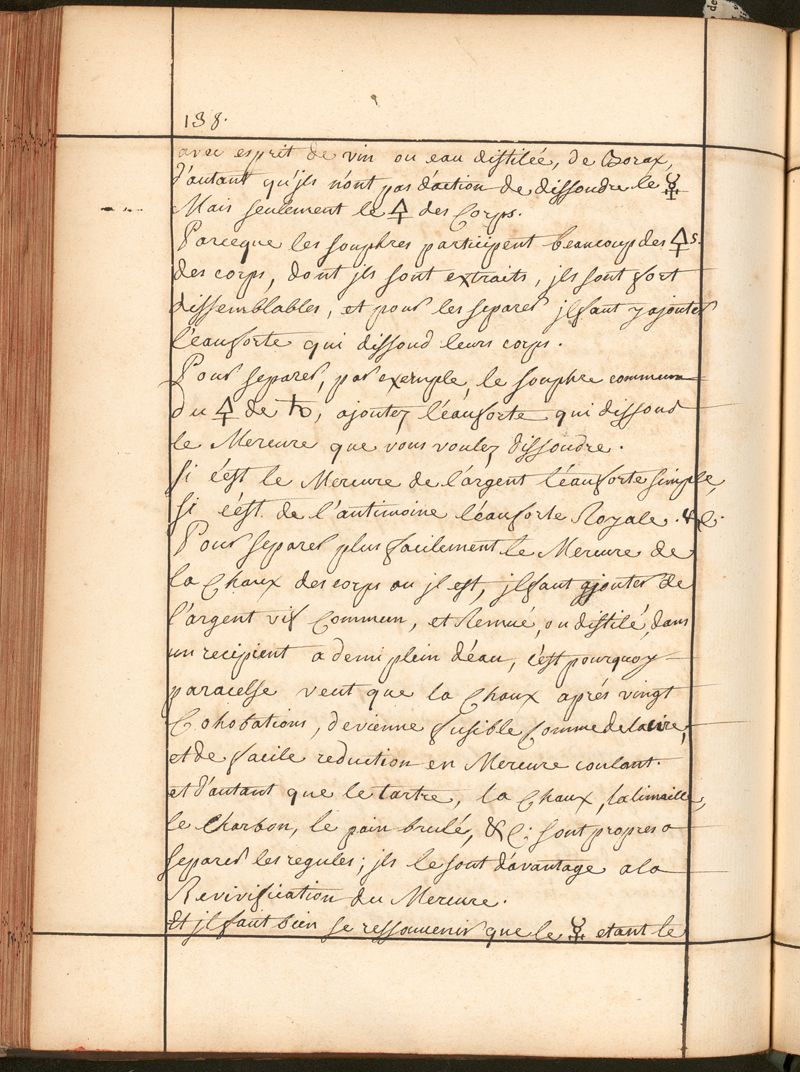 138.
avec esprit de vin ou eau distilée, de Borax,
d'autant qu'jls n'ont pas d'action de dissoudre le ☿
Mais seulement le 🜍 des Corps.
Parceque les souphres participent beaucoup des 🜍s.
des corps, dont jls sont extraits, jls sont fort
dissemblables, et pour les separer jl faut y ajouter
l'eau forte qui dissoud leurs corps.
Pour separer, par exemple, le souphre commun
du 🜍 de ♄, ajoutez l'eau forte qui dissoud
le Mercure que vous voulez dissoudre.
si c'est le Mercure de l'argent l'eau forte simple,
si c'est de l'antimoine l'eau forte Royale. &c.
Pour separer plus facilement le Mercure de
la Chaux des corps ou jl est, jl faut ajouter de
l'argent vif Commun, et Remué, ou distilé, dans
un recipient a demi plein d'eau, c'est pourquoy
paracelse veut que la Chaux aprés vingt
Cohobations, devienne fusible Comme de la cire,
et de facile reduction en Mercure coulant.
et d'autant que le tartre, la Chaux, la limaille,
le Charbon, le pain brulé, &c: sont propres a
separer les regules; jls le sont d'avantage a la
Revivification du Mercure.
Et jl faut bien se ressouvenir que le ☿ etant le